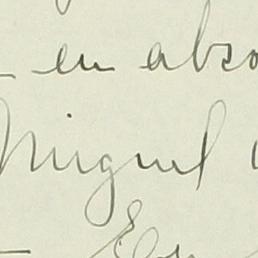 en abso
Miguel